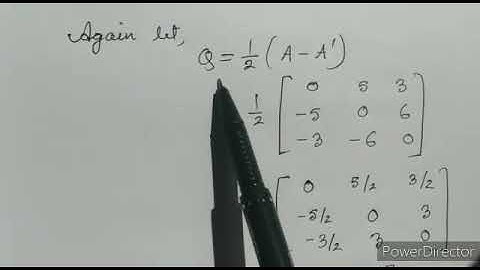 Again let,
Q = 1/2 (A - A')
1/2 [ 0 5 3
-5 0 6
-3 -6 0 ]
[ 0 5/2 3/2
-5/2 0 3
-3/2 3 0
PowerDirector